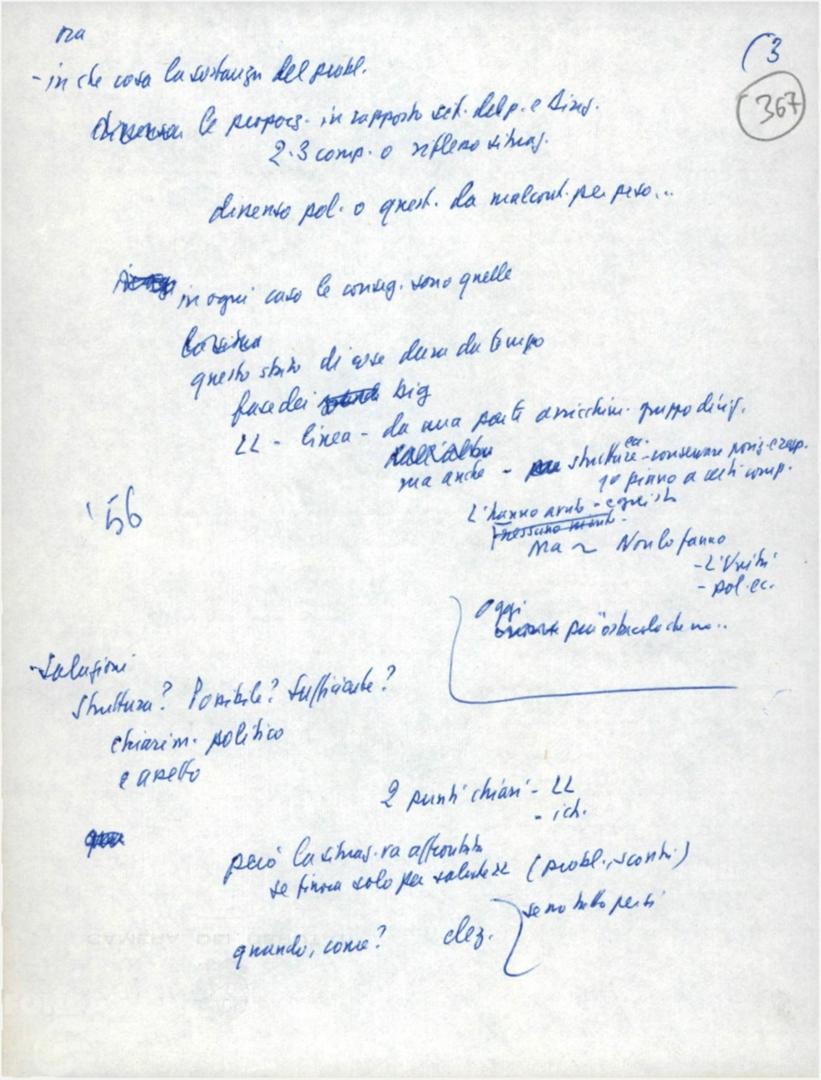 ma
(3
367
- in che cosa la sostanza del probl.
le propos. in rapporto sit. del p. e dirig.
2-3 comp. o riflesso situaz.
dissenso pol. o quest. da malcont. per peso...
in ogni caso le conseg. sono quelle
questo stato di cose dura da tempo
fase dei big
LL - linea - da una parte arricchim. gruppo dirig.
ma anche - strutture - conservare
1° piano a certi comp.
'56
L'hanno avuto -
Ma ~ Non lo fanno
- L'Unità
- pol. ec.
Oggi
più ostacolo che no..
- Soluzioni
Struttura? Possibile? Sufficiente?
chiarim. politico
e assetto
2 punti chiari - LL
- id.
però la situaz. va affrontata
se finora solo per salute (probl., scontri)
se no tutto perso
quando, come? elez.